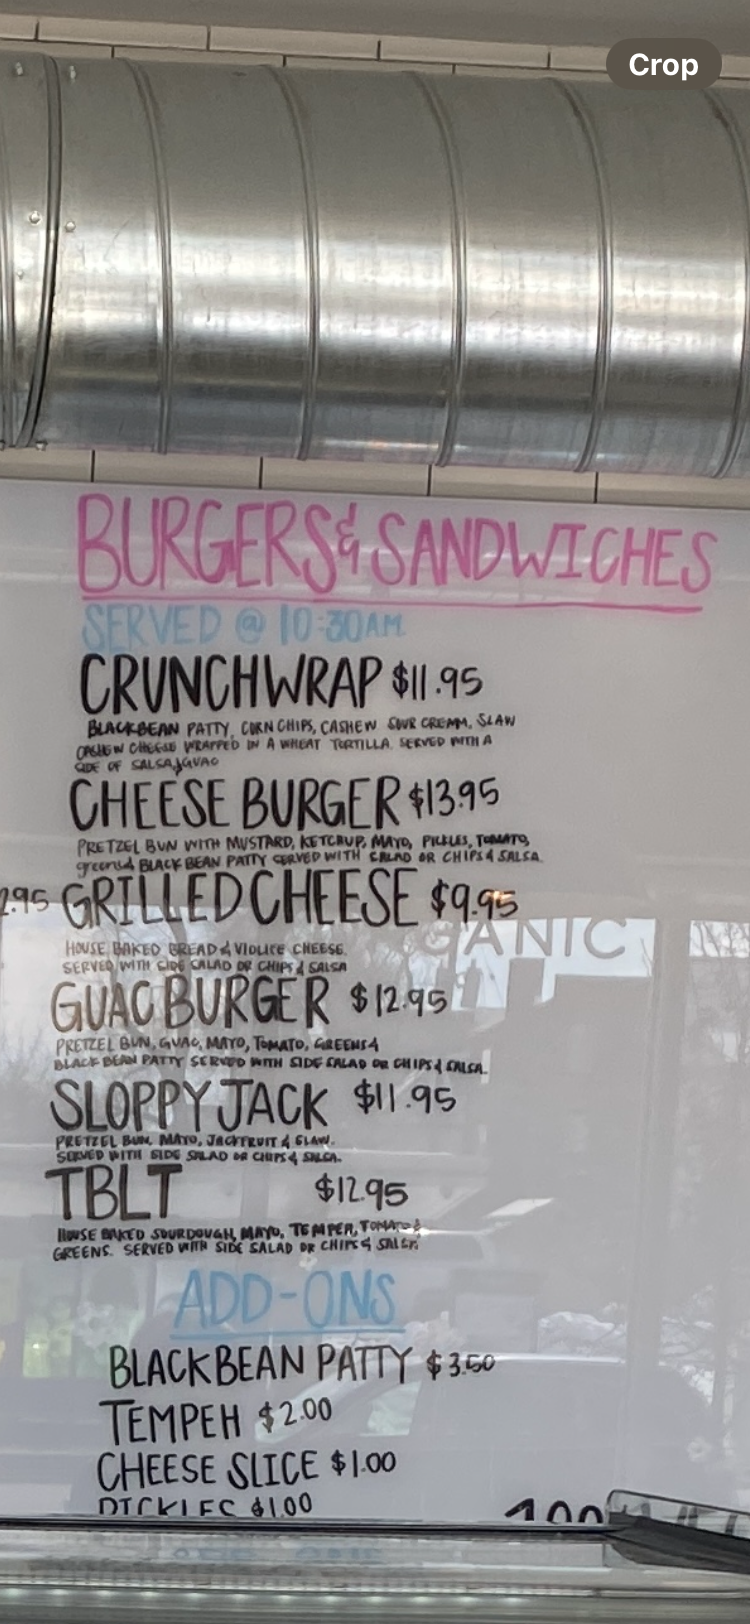 Crop
BURGERS & SANDWICHES
SERVED @ 10:30AM
CRUNCHWRAP $11.95
BLACKBEAN PATTY, CORN CHIPS, CASHEW SOUR CREAM, SLAW
CASHEW CHEESE WRAPPED IN A WHEAT TORTILLA. SERVED WITH A
SIDE OF SALSA & GUAC
CHEESE BURGER $13.95
PRETZEL BUN WITH MUSTARD, KETCHUP, MAYO, PICKLES, TOMATO,
greens & BLACK BEAN PATTY SERVED WITH SALAD OR CHIPS & SALSA.
2.95 GRILLED CHEESE $9.95
GANIC
HOUSE BAKED BREAD & VIOLIFE CHEESE.
SERVED WITH SIDE SALAD OR CHIPS & SALSA
GUAC BURGER $12.95
PRETZEL BUN, GUAC, MAYO, TOMATO, GREENS &
BLACK BEAN PATTY SERVED WITH SIDE SALAD OR CHIPS & SALSA.
SLOPPY JACK $11.95
PRETZEL BUN, MAYO, JACKFRUIT & SLAW.
SERVED WITH SIDE SALAD OR CHIPS & SALSA.
TBLT $12.95
HOUSE BAKED SOURDOUGH, MAYO, TEMPEH, TOMATO &
GREENS. SERVED WITH SIDE SALAD OR CHIPS & SALSA
ADD-ONS
BLACKBEAN PATTY $3.50
TEMPEH $2.00
CHEESE SLICE $1.00
PICKLES $1.00